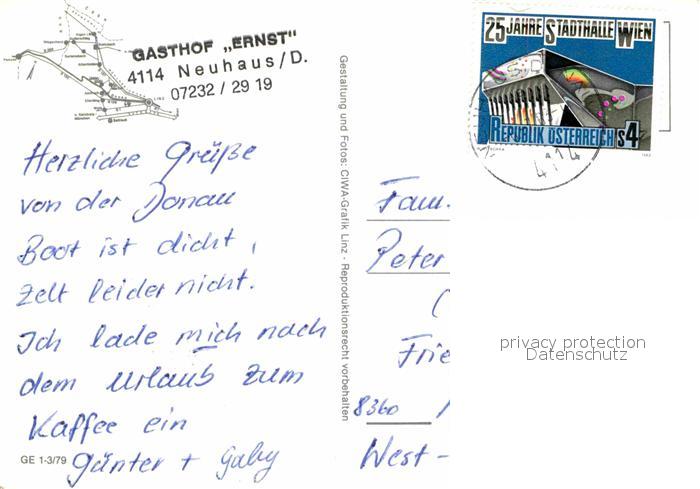 GASTHOF „ERNST"
4114 Neuhaus/D.
07232 / 29 19
Herzliche Grüße
von der Donau
Boot ist dicht,
Zelt leider nicht.
Ich lade mich nach
dem Urlaub zum
Kaffee ein
Günter + Gaby
GE 1-3/79
Gestaltung und Fotos: CIWA-Grafik Linz - Reproduktionsrecht vorbehalten
25 JAHRE STADTHALLE WIEN
REPUBLIK ÖSTERREICH S4
4114
Fam.
Peter
(
Frie
8360
West-
privacy protection
Datenschutz